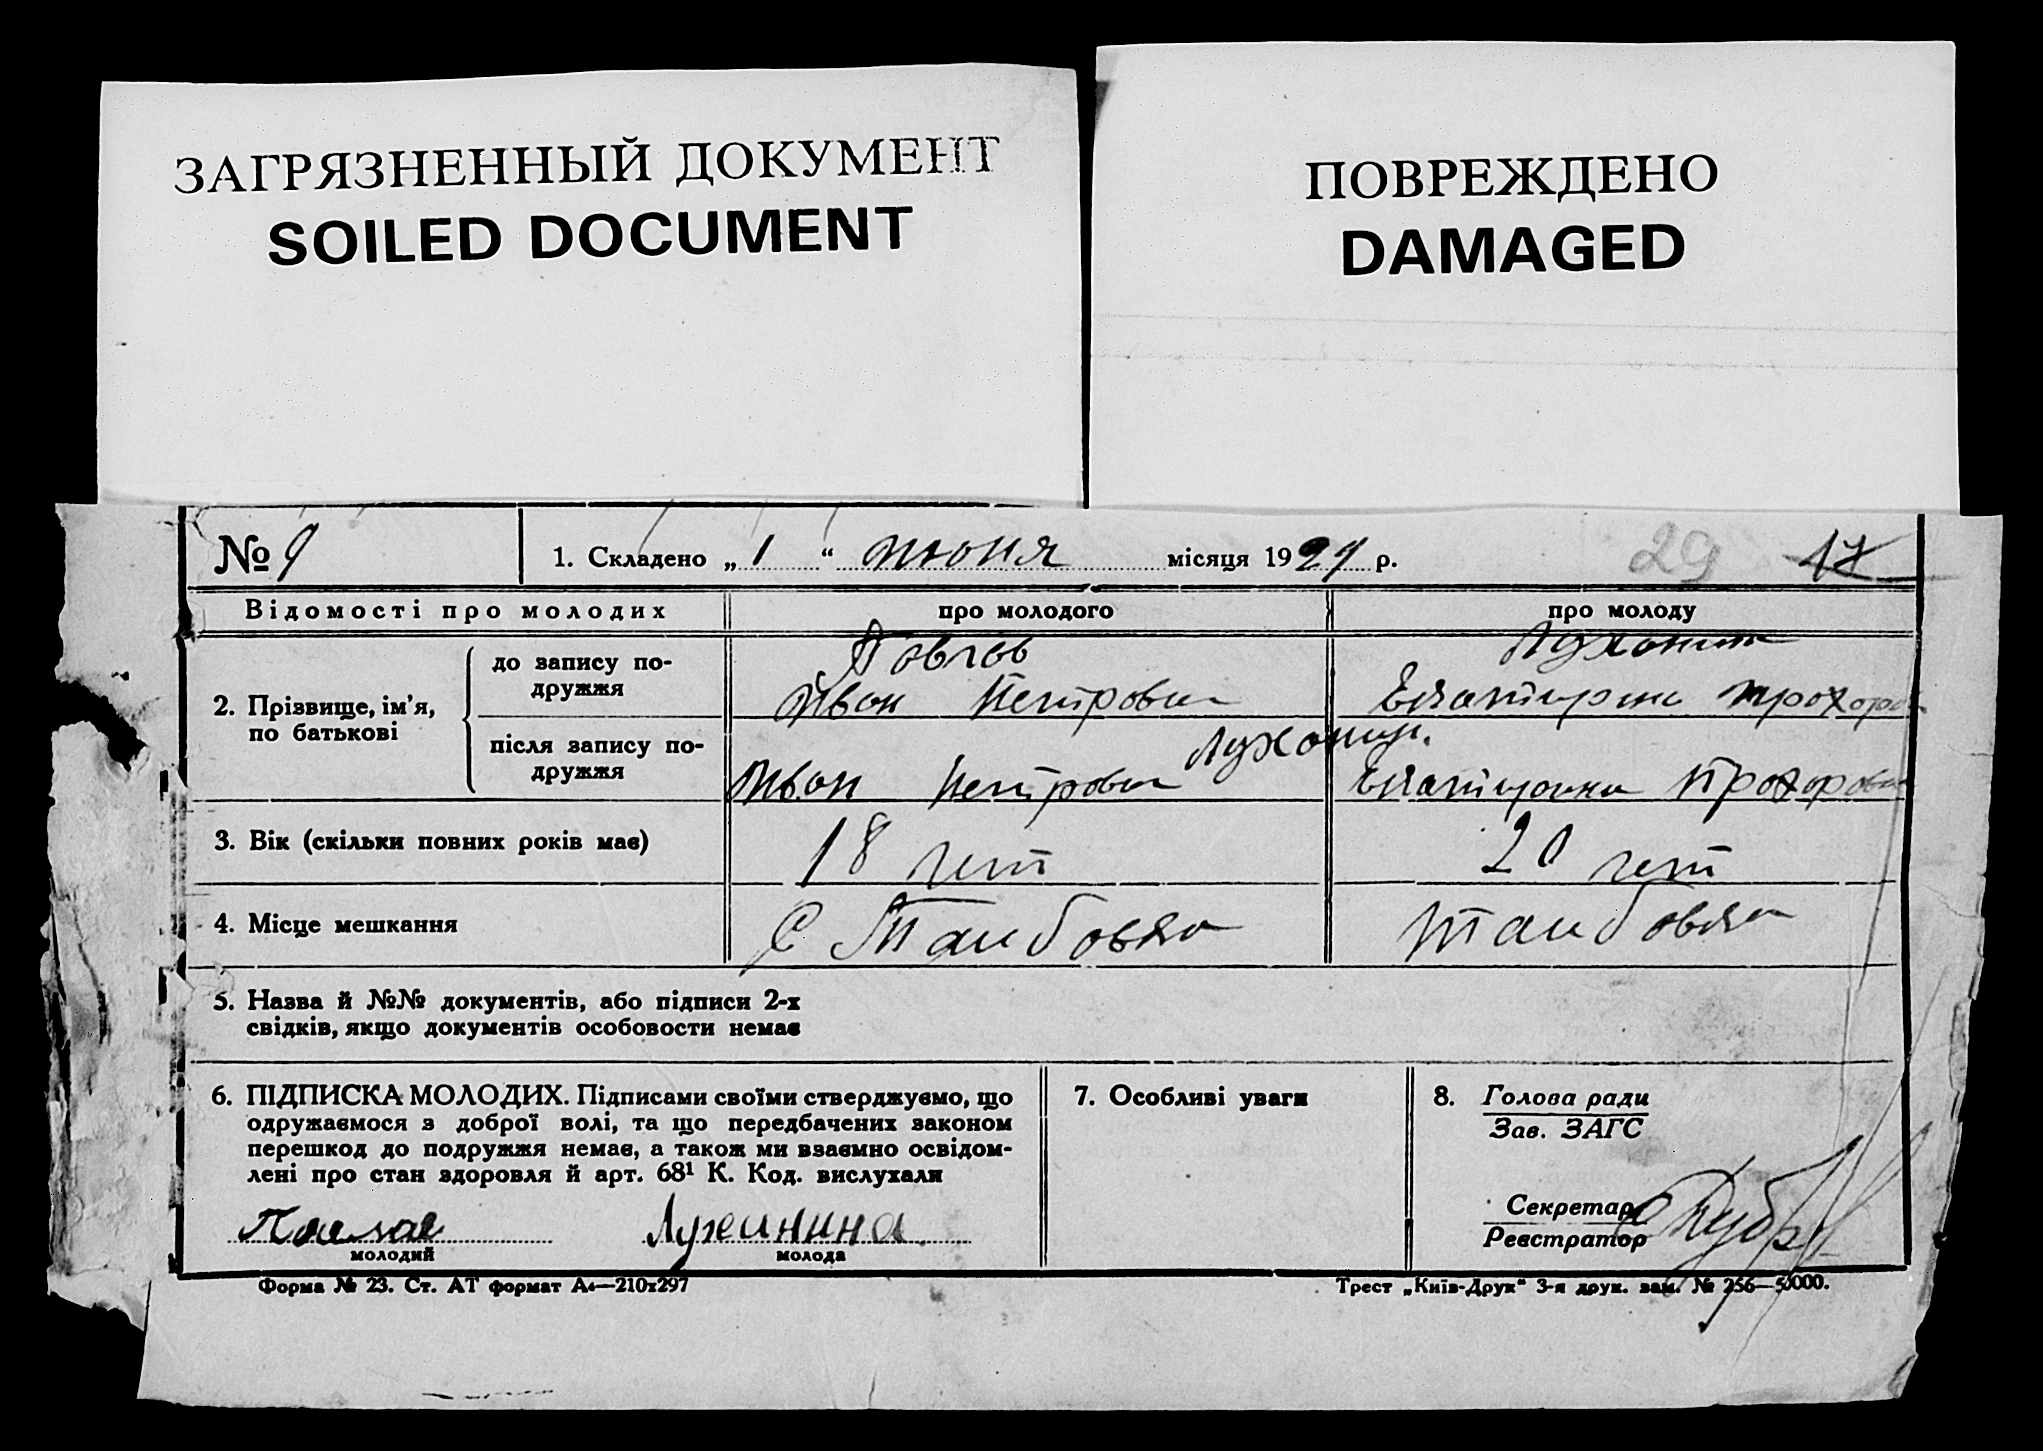 ЗАГРЯЗНЕННЫЙ ДОКУМЕНТ
SOILED DOCUMENT
ПОВРЕЖДЕНО
DAMAGED
№ 9
1. Складено „ 1 “ июня місяця 1929 р.
29 17
Відомості про молодих
про молодого
про молоду
2. Прізвище, ім’я, по батькові
до запису по-
дружжя
Иван Петрович
Екатирина Прохоров
після запису по-
дружжя
Иван Петрович
Екатирина Прохоровн
3. Вік (скільки повних років має)
18 лет
20 лет
4. Місце мешкання
С Танбовка
Танбовка
5. Назва й №№ документів, або підписи 2-х
свідків, якщо документів особовости немає
6. ПІДПИСКА МОЛОДИХ. Підписами своїми стверджуємо, що
одружаємося з доброї волі, та що передбачених законом
перешкод до подружжя немає, а також ми взаємно освідом-
лені про стан здоровля й арт. 68¹ К. Код. вислухали
молодий
молода
7. Особливі уваги
8. Голова ради
Зав. ЗАГС
Секретар
Реєстратор
Форма № 23. Ст. АТ формат А₄—210х297
Трест „Київ-Друк“ 3-я друк. зам. № 256—50000.